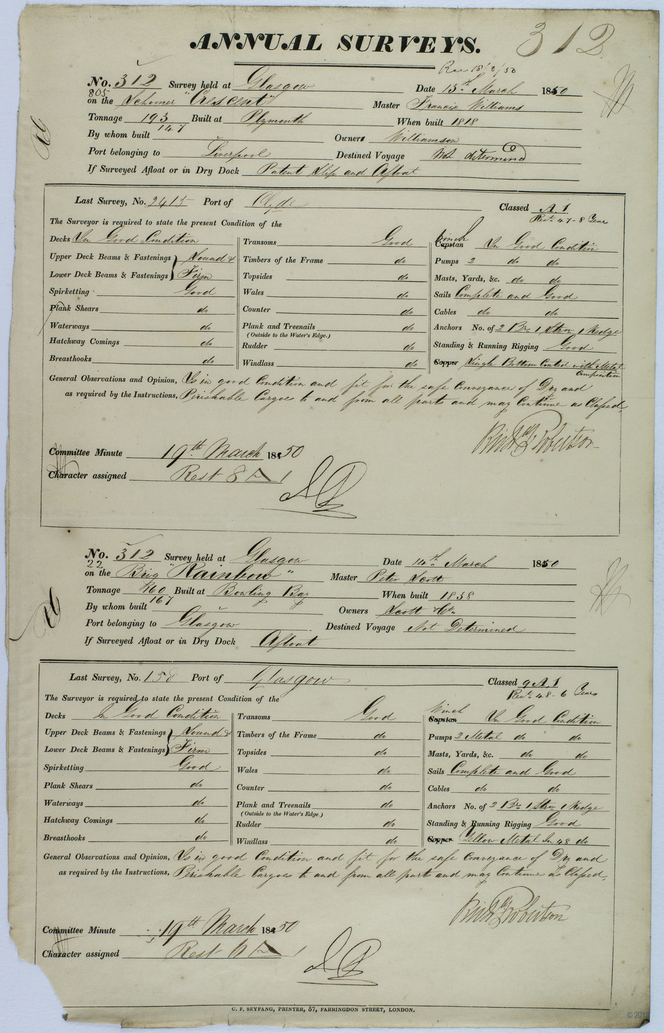 ANNUAL SURVEYS.
312
No. 312 Survey held at Glasgow Date 15th March 1850
805 on the Schooner "Crescent" Master Francis Williams
Tonnage 193 Built at Plymouth When built 1818
147
By whom built Owners Williamson
Port belonging to Liverpool Destined Voyage Not determined
If Surveyed Afloat or in Dry Dock Patent Slip and Afloat
Last Survey, No. 2415 Port of Clyde Classed A.1
47-8 Years
The Surveyor is required to state the present Condition of the
Decks In Good Condition Transoms Good Winch Capstan In Good Condition
Upper Deck Beams & Fastenings Sound & Timbers of the Frame do Pumps 2 do do
Lower Deck Beams & Fastenings Firm Topsides do Masts, Yards, &c. do do
Spirketting Good Wales do Sails Complete and Good
Plank Shears do Counter do Cables do do
Waterways do Plank and Treenails do Anchors No. of 2 Brs 1 Strm 1 Kedge
(Outside to the Water's Edge.)
Hatchway Comings do Rudder do Standing & Running Rigging Good
Breasthooks do Windlass do Copper Single Bottom Coated with Metal Composition
General Observations and Opinion, Is in good Condition and fit for the safe Conveyance of Dry and
as required by the Instructions, Perishable Cargoes to and from all parts and may Continue as Classed.
Richd Robertson
Committee Minute 19th March 1850
Character assigned Rest 8 A 1
No. 312 Survey held at Glasgow Date 14th March 1850
22 on the Brig "Rainbow" Master Peter Scott
Tonnage 160 Built at Bowling Bay When built 1838
167
By whom built " Owners Scott & Co.
Port belonging to Glasgow Destined Voyage Not Determined
If Surveyed Afloat or in Dry Dock Afloat
Last Survey, No. 158 Port of Glasgow Classed 9 A.1
48-6 Years
The Surveyor is required to state the present Condition of the
Decks In Good Condition Transoms Good Winch Capstan In Good Condition
Upper Deck Beams & Fastenings Sound & Timbers of the Frame do Pumps 2 Metal do do
Lower Deck Beams & Fastenings Firm Topsides do Masts, Yards, &c. do do
Spirketting Good Wales do Sails Complete and Good
Plank Shears do Counter do Cables do do
Waterways do Plank and Treenails do Anchors No. of 2 Brs 1 Strm 1 Kedge
(Outside to the Water's Edge.)
Hatchway Comings do Rudder do Standing & Running Rigging Good
Breasthooks do Windlass do Copper Yellow Metal In 48 do
General Observations and Opinion, Is in good Condition and fit for the safe Conveyance of Dry and
as required by the Instructions, Perishable Cargoes to and from all parts and may Continue as Classed.
Richd Robertson
Committee Minute 19th March 1850
Character assigned Rest 6 A 1
C. F. SEYFANG, PRINTER, 57, FARRINGDON STREET, LONDON.